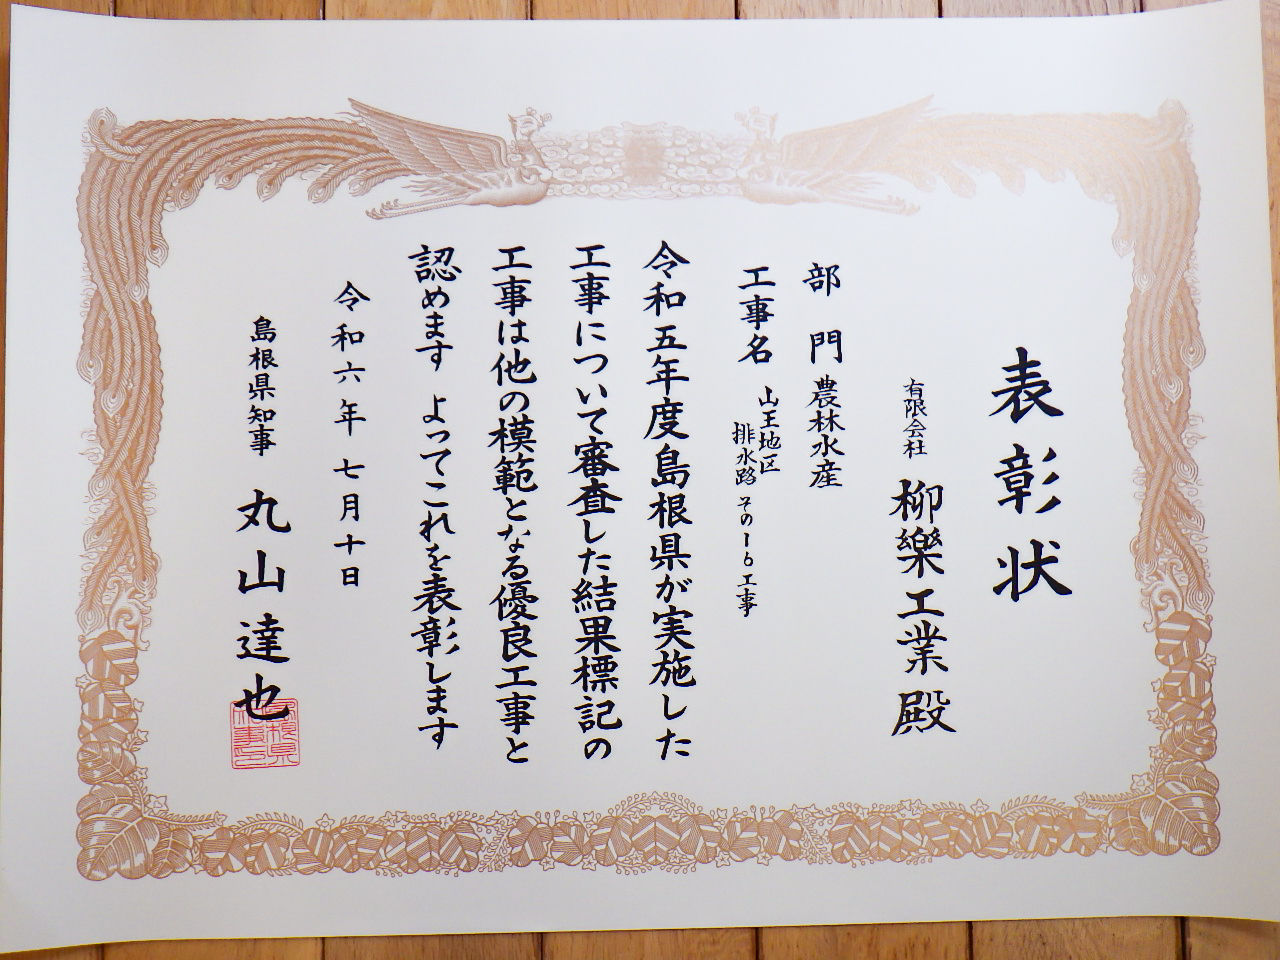 表彰状
有限会社 柳樂工業殿
部門 農林水産
工事名 山王地区
排水路 その16工事
令和五年度島根県が実施した
工事について審査した結果標記の
工事は他の模範となる優良工事と
認めます よってこれを表彰します
令和六年七月十日
島根県知事 丸山達也